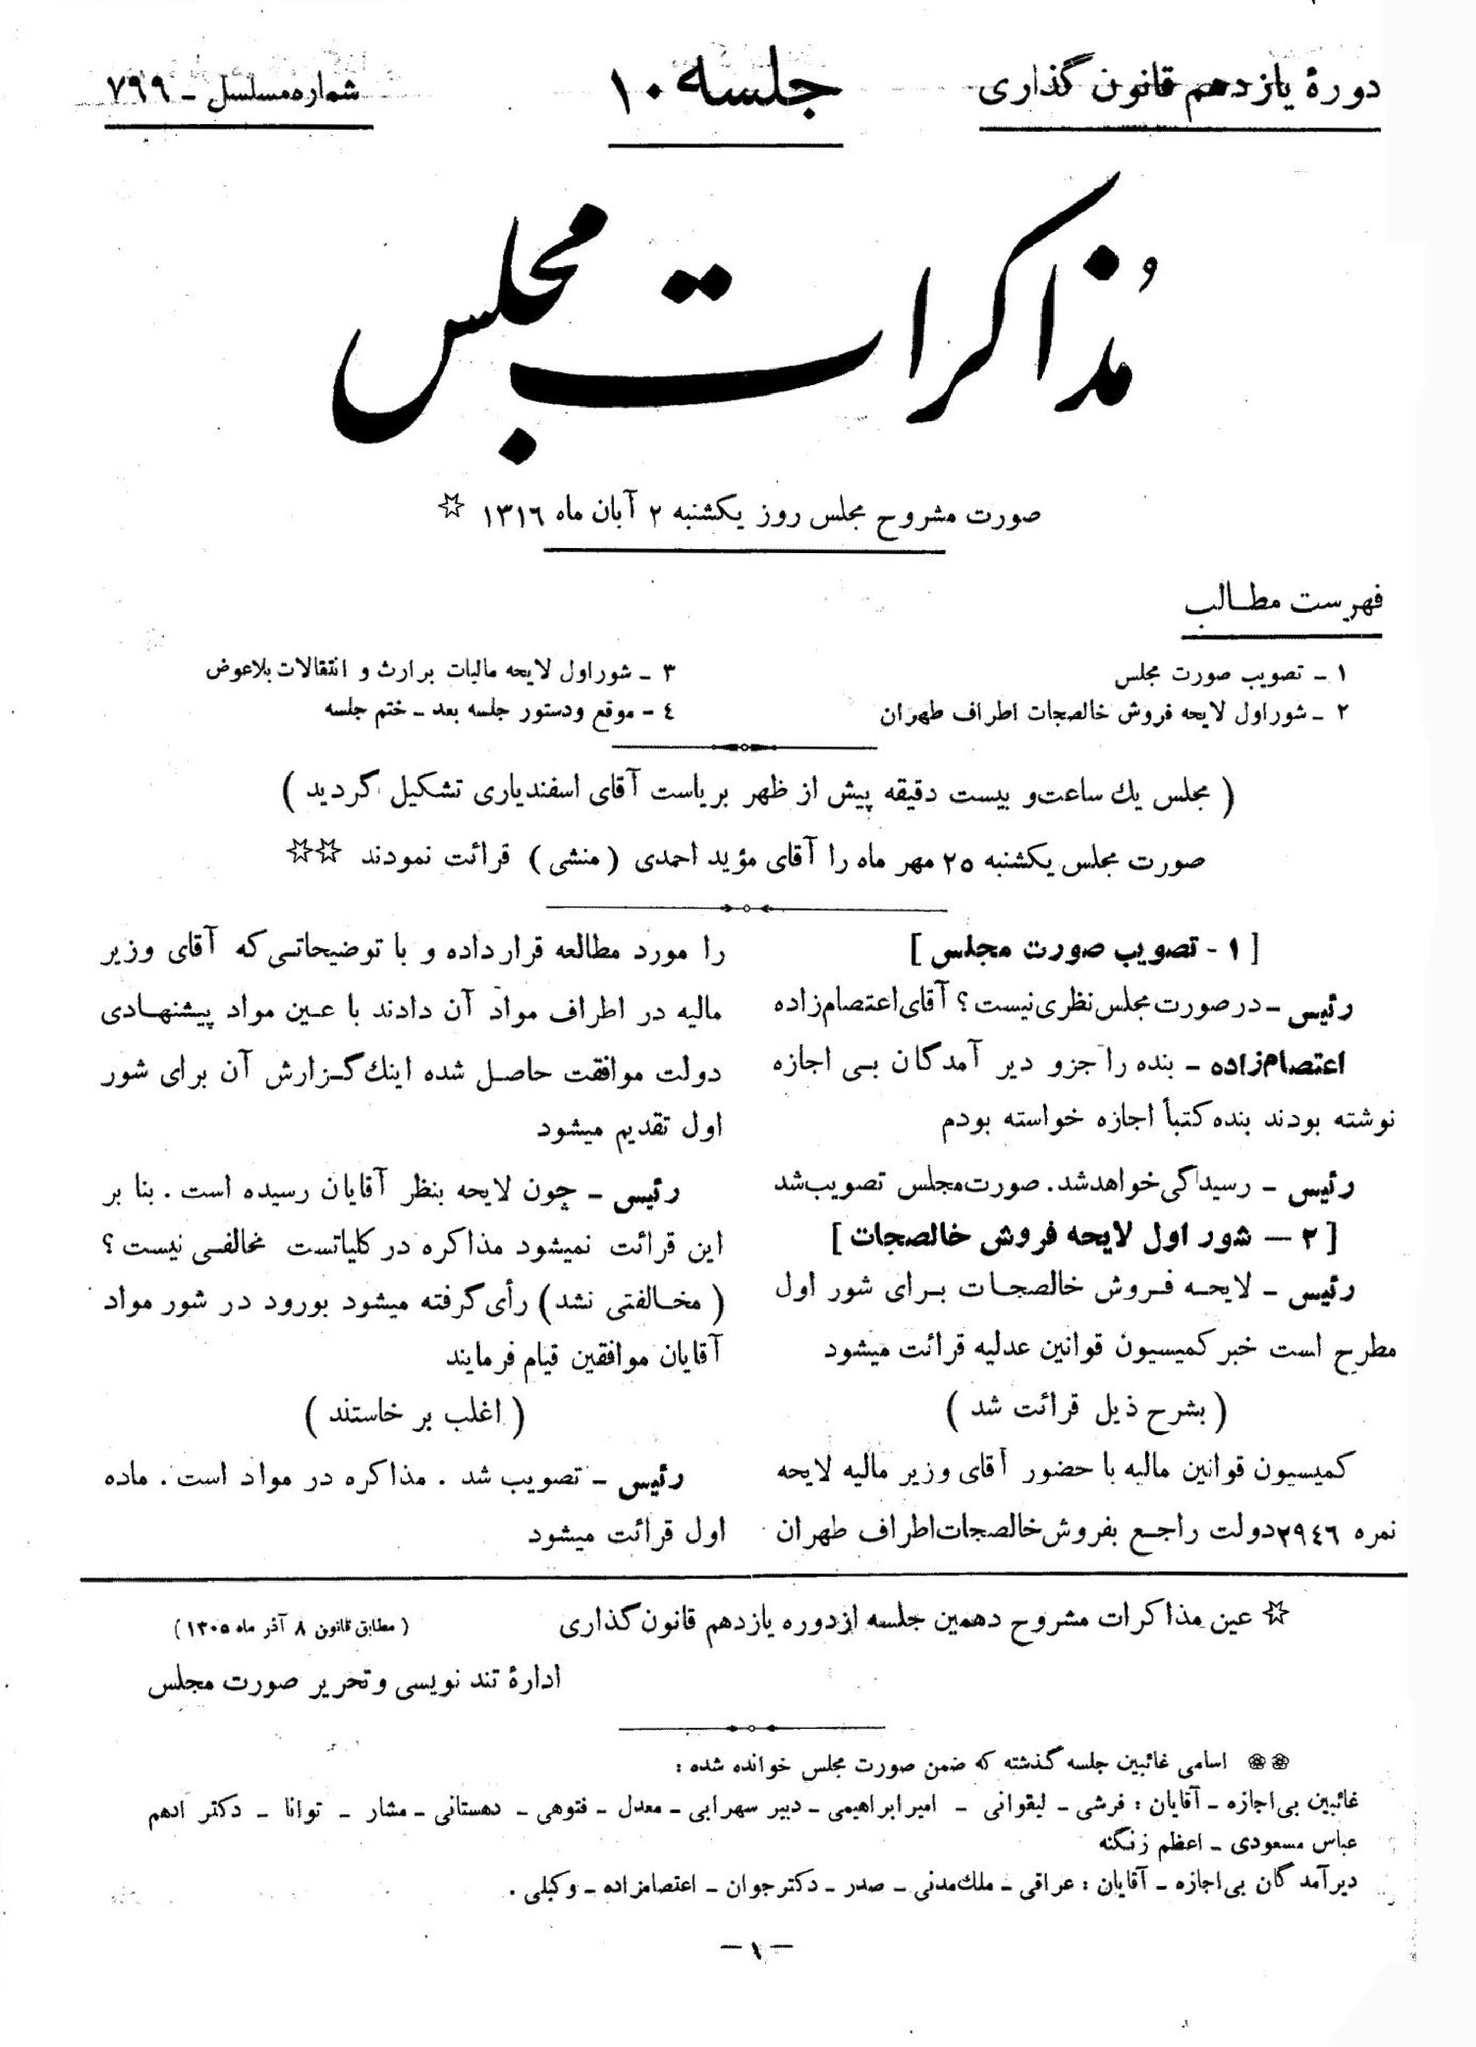 دورهٔ یازدهم قانون گذاری
جلسه ۱۰
شماره مسلسل ـ ۷۹۹
مذاکرات مجلس
صورت مشروح مجلس روز یکشنبه ۲ آبان ماه ۱۳۱۶ ☆
فهرست مطالب
۱ ـ تصویب صورت مجلس
۲ ـ شور اول لایحه فروش خالصجات اطراف طهران
۳ ـ شور اول لایحه مالیات بر ارث و انتقالات بلاعوض
۴ ـ موقع و دستور جلسه بعد ـ ختم جلسه
( مجلس یك ساعت و بیست دقیقه پیش از ظهر بریاست آقای اسفندیاری تشکیل گردید )
صورت مجلس یکشنبه ۲۵ مهر ماه را آقای مؤید احمدی (منشی) قرائت نمودند ☆☆
[ ۱ - تصویب صورت مجلس ]
رئیس ـ در صورت مجلس نظری نیست؟ آقای اعتصام‌زاده
اعتصام‌زاده ـ بنده را جزو دیر آمدگان بی اجازه
نوشته بودند بنده کتباً اجازه خواسته بودم
رئیس ـ رسیدگی خواهد شد. صورت مجلس تصویب شد
[ ۲ — شور اول لایحه فروش خالصجات ]
رئیس ـ لایحه فروش خالصجات برای شور اول
مطرح است خبر کمیسیون قوانین عدلیه قرائت میشود
( بشرح ذیل قرائت شد )
کمیسیون قوانین مالیه با حضور آقای وزیر مالیه لایحه
نمره ۲۹٤٦ دولت راجع بفروش خالصجات اطراف طهران
را مورد مطالعه قرار داده و با توضیحاتی که آقای وزیر
مالیه در اطراف مواد آن دادند با عین مواد پیشنهادی
دولت موافقت حاصل شده اینك گزارش آن برای شور
اول تقدیم میشود
رئیس ـ چون لایحه بنظر آقایان رسیده است . بنا بر
این قرائت نمیشود مذاکره در کلیاتست مخالفی نیست؟
( مخالفتی نشد ) رأی گرفته میشود بورود در شور مواد
آقایان موافقین قیام فرمایند
( اغلب بر خاستند )
رئیس ـ تصویب شد . مذاکره در مواد است . ماده
اول قرائت میشود
☆ عین مذاکرات مشروح دهمین جلسه از دوره یازدهم قانون گذاری
( مطابق قانون ۸ آذر ماه ۱۳۰۵ )
ادارهٔ تند نویسی و تحریر صورت مجلس
اسامی غائبین جلسه گذشته که ضمن صورت مجلس خوانده شده :
غائبین بی‌اجازه ـ آقایان : فرشی ـ لیقوانی ـ امیر ابراهیمی ـ دبیر سهرابی ـ معدل ـ فتوهی ـ دهستانی ـ مشار ـ توانا ـ دکتر ادهم
عباس مسعودی ـ اعظم زنگنه
دیر آمدگان بی‌اجازه ـ آقایان : عراقی ـ ملك مدنی ـ صدر ـ دکتر جوان ـ اعتصامزاده ـ وکیلی .
— ۱ —